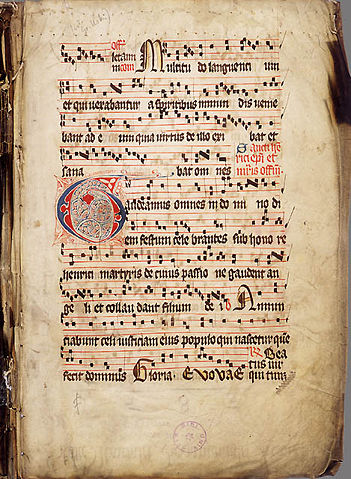 Multitudo languencium
et qui vexabantur a spiritibus inmun dis venie
bant ad eum quia virtus de illo exi bat et
sana bat om nes
Gaudeamus omnes in do mi no di
em festum cele brantes sub hono re
henrici martyris de cuius passio ne gaudent an
ge li et collau dant filium de i Annun
ciabunt celi iusticiam eius populo qui nascetur que
fecit dominus Gloria Evovae